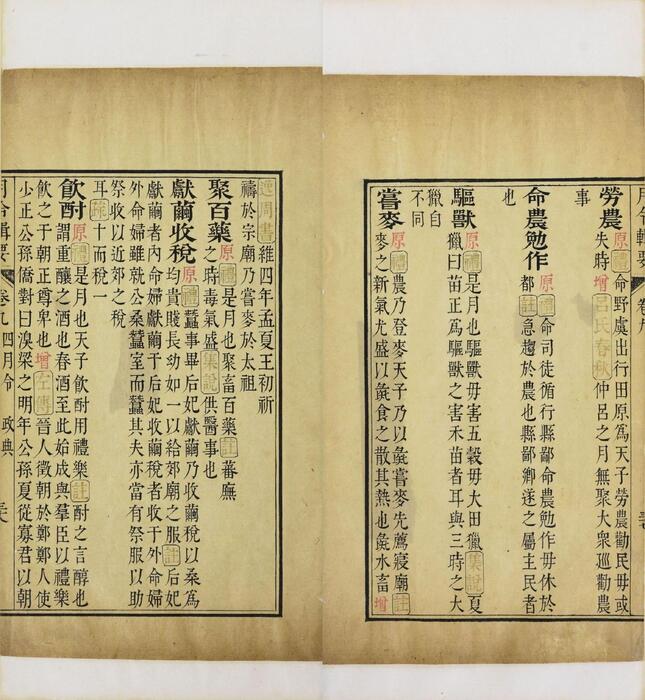 月令輯要 卷九
勞農 原禮命野虞出行田原為天子勞農勸民毋或
失時增呂氏春秋仲呂之月無聚大衆巡勸農
事
命農勉作 原禮命司徒循行縣鄙命農勉作毋休於
都註急趨於農也縣鄙鄉遂之屬主民者
也
驅獸 原禮是月也驅獸毋害五穀毋大田獵集說夏
獵曰苗正為驅獸之害禾苗者耳與三時之大
獵自
不同
嘗麥 原禮農乃登麥天子乃以彘嘗麥先薦寢廟註
麥之新氣尤盛以彘食之散其熱也彘水畜增
逸周書維四年孟夏王初祈
禱於宗廟乃嘗麥於太祖
聚百藥 原禮是月也聚畜百藥註蕃廡
之時毒氣盛集說供醫事也
獻繭收稅 原禮蠶事畢后妃獻繭乃收繭稅以桑為
均貴賤長幼如一以給郊廟之服註后妃
獻繭者內命婦獻繭于后妃收繭稅者收于外命婦
外命婦雖就公桑蠶室而蠶其夫亦當有祭服以助
祭收以近郊之稅
耳疏十而稅一
飲酎 原禮是月也天子飲酎用禮樂註酎之言醇也
謂重釀之酒也春酒至此始成與羣臣以禮樂
飲之于朝正尊卑也增左傳晉人徵朝於鄭鄭人使
少正公孫僑對曰溴梁之明年公孫夏從寡君以朝
月令輯要 卷九 四月令 政典